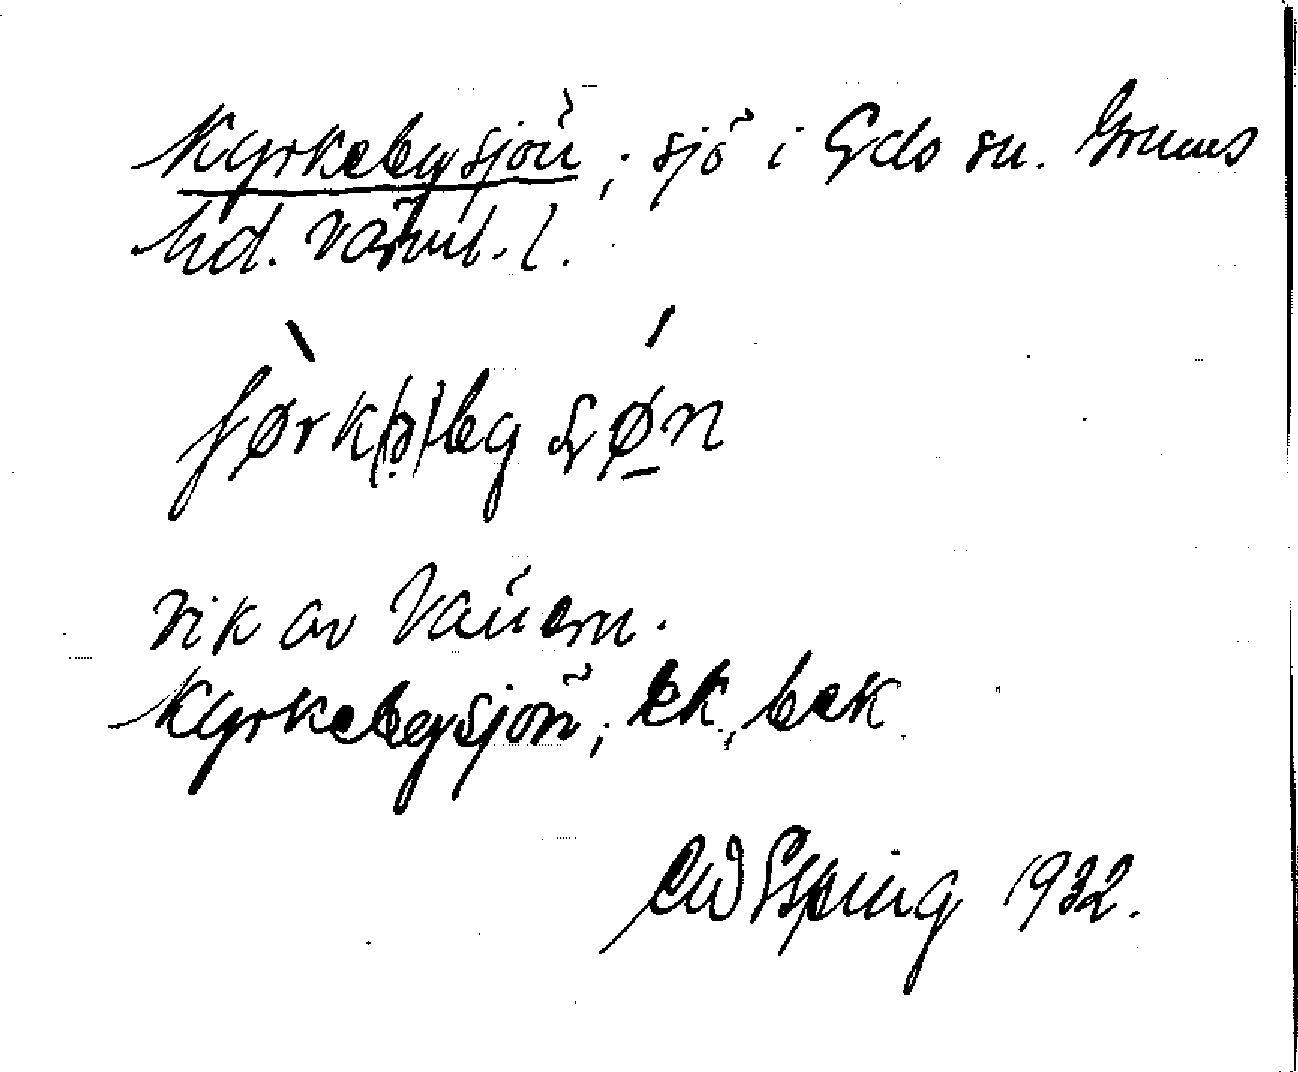 Kyrkebysjön; sjö i Eds sn. Grums
hd. Värml. l.
ɟø̀rk(ə)by ʂǿ̠n
vik av Vänern.
Kyrkebysjön; ek, bek
EW Esping 1932.